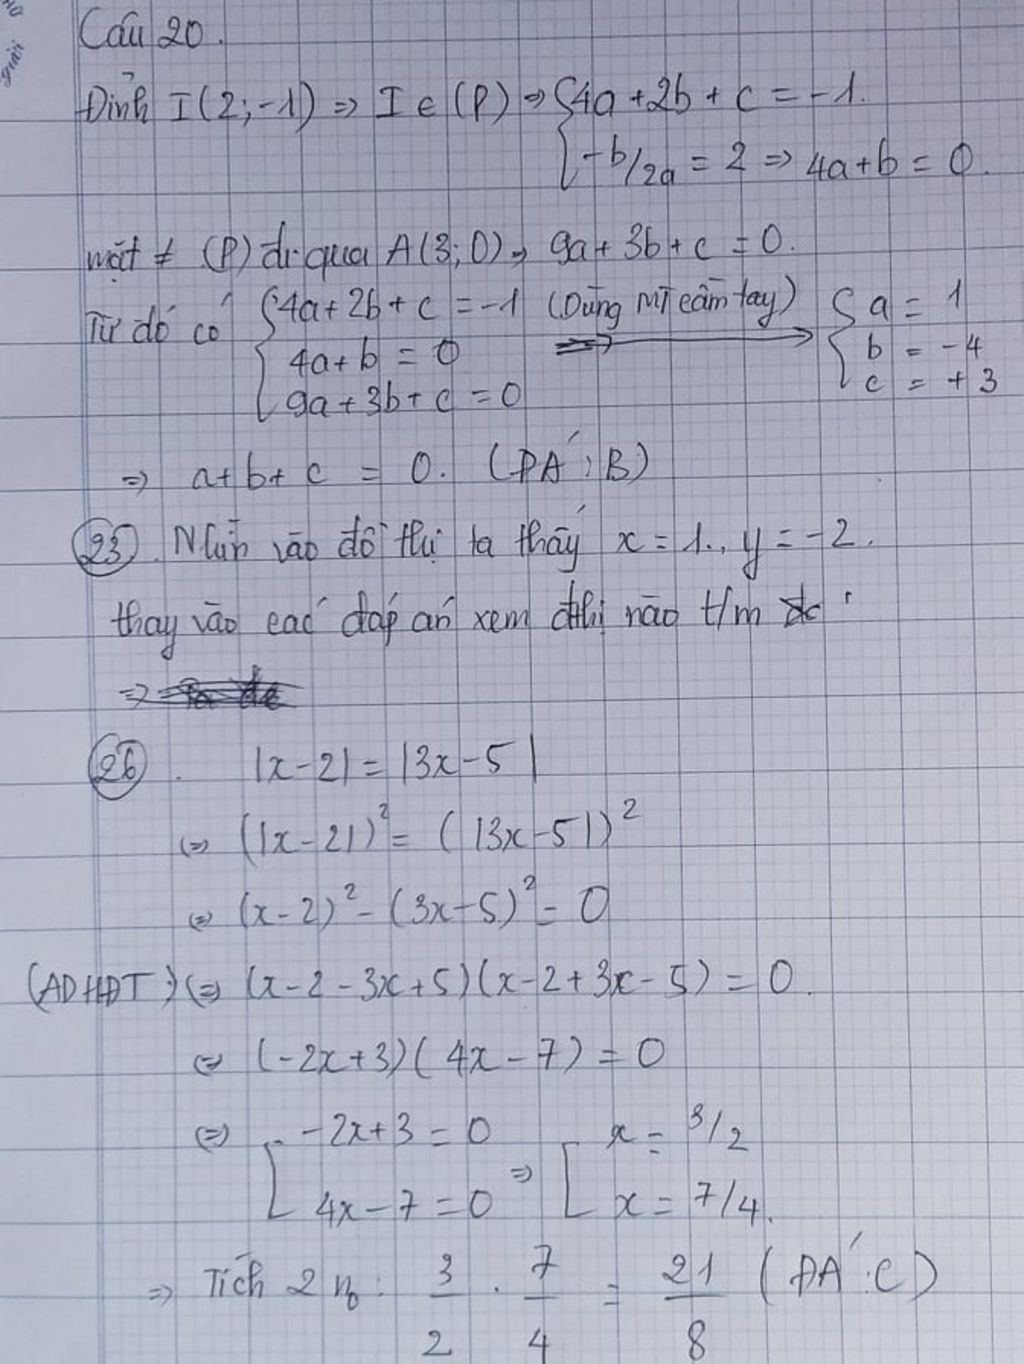 Câu 20.
Đỉnh I(2;-1) => I ∈ (P) => { 4a + 2b + c = -1.
-b/2a = 2 => 4a + b = 0.
mặt ≠ (P) đi qua A(3;0) => 9a + 3b + c = 0.
Từ đó có { 4a + 2b + c = -1 (Dùng MT cầm tay) { a = 1
4a + b = 0 => b = -4
9a + 3b + c = 0 c = +3
=> a + b + c = 0. (ĐÁ: B)
23. Nhìn vào đồ thị ta thấy x = 1., y = -2.
thay vào các đáp án xem đthị nào t/m
=>
26. |x-2| = |3x-5|
<=> (|x-2|)² = (|3x-5|)²
<=> (x-2)² - (3x-5)² = 0
(ADHĐT) <=> (x-2-3x+5)(x-2+3x-5) = 0.
<=> (-2x+3)(4x-7) = 0
<=> [ -2x+3 = 0 => [ x = 3/2
4x-7 = 0 x = 7/4.
=> Tích 2 n₀: 3/2 . 7/4 = 21/8 (ĐÁ: C)